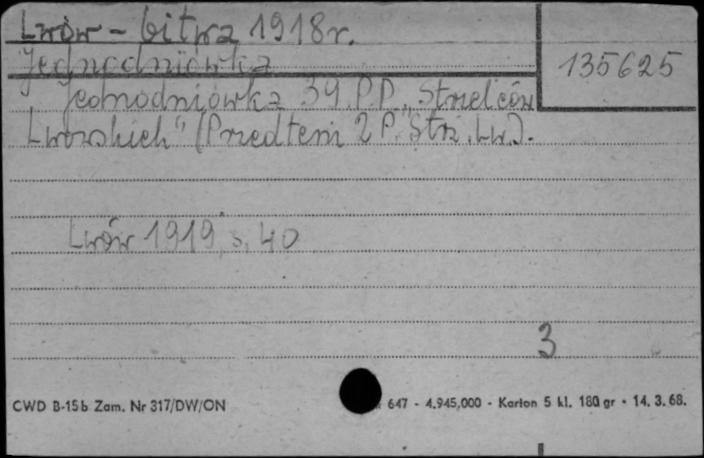 Lwów - bitwa 1918 r.
Jednodniówka
135625
Jednodniówka 39 P.P. „Strzelców
Lwowskich" (Przedtem 2 P. Strz. Lw.).
Lwów 1919, s. 40
3
CWD B-15b Zam. Nr 317/DW/ON
647 - 4.945,000 - Karton 5 kl. 180 gr - 14. 3. 68.